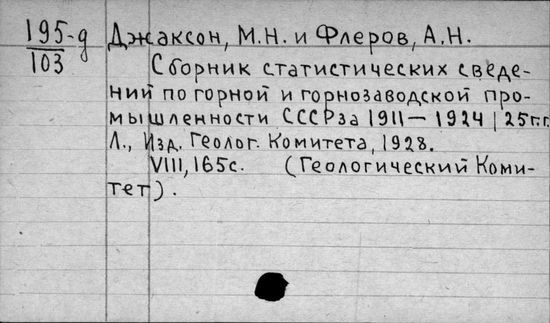 195-д
103
Джаксон, М.Н. и Флеров, А.Н.
Сборник статистических сведе-
ний по горной и горнозаводской про-
мышленности СССР за 1911—1924/25 г.г.
Л., Изд. Геолог. Комитета, 1928.
VIII, 165с. (Геологический Коми-
тет).